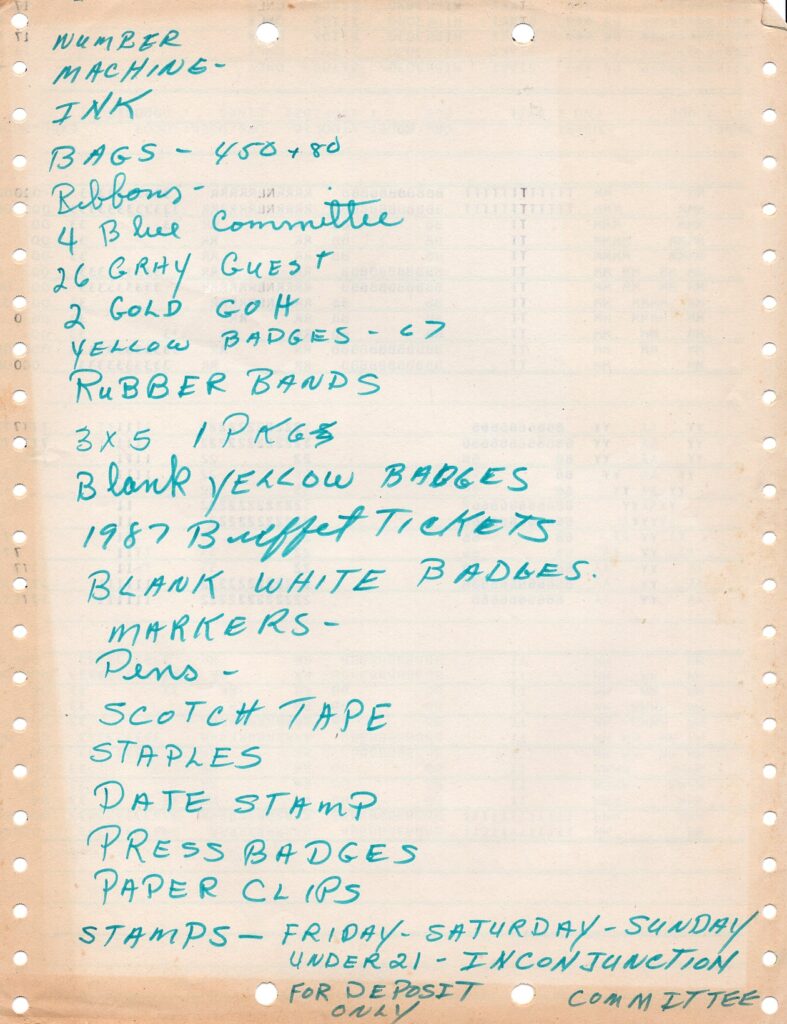 NUMBER
MACHINE -
INK
BAGS - 450 + 80
Ribbons -
4 Blue Committee
26 GRAY GUEST
2 GOLD GOH
YELLOW BADGES - < >
RUBBER BANDS
3 X 5 1 PKG
Blank YELLOW BADGES
1987 Buffet TICKETS
BLANK WHITE BADGES.
MARKERS -
Pens -
SCOTCH TAPE
STAPLES
DATE STAMP
PRESS BADGES
PAPER CLIPS
STAMPS - FRIDAY - SATURDAY - SUNDAY
UNDER 21 - INCONJUNCTION
FOR DEPOSIT COMMITTEE
ONLY